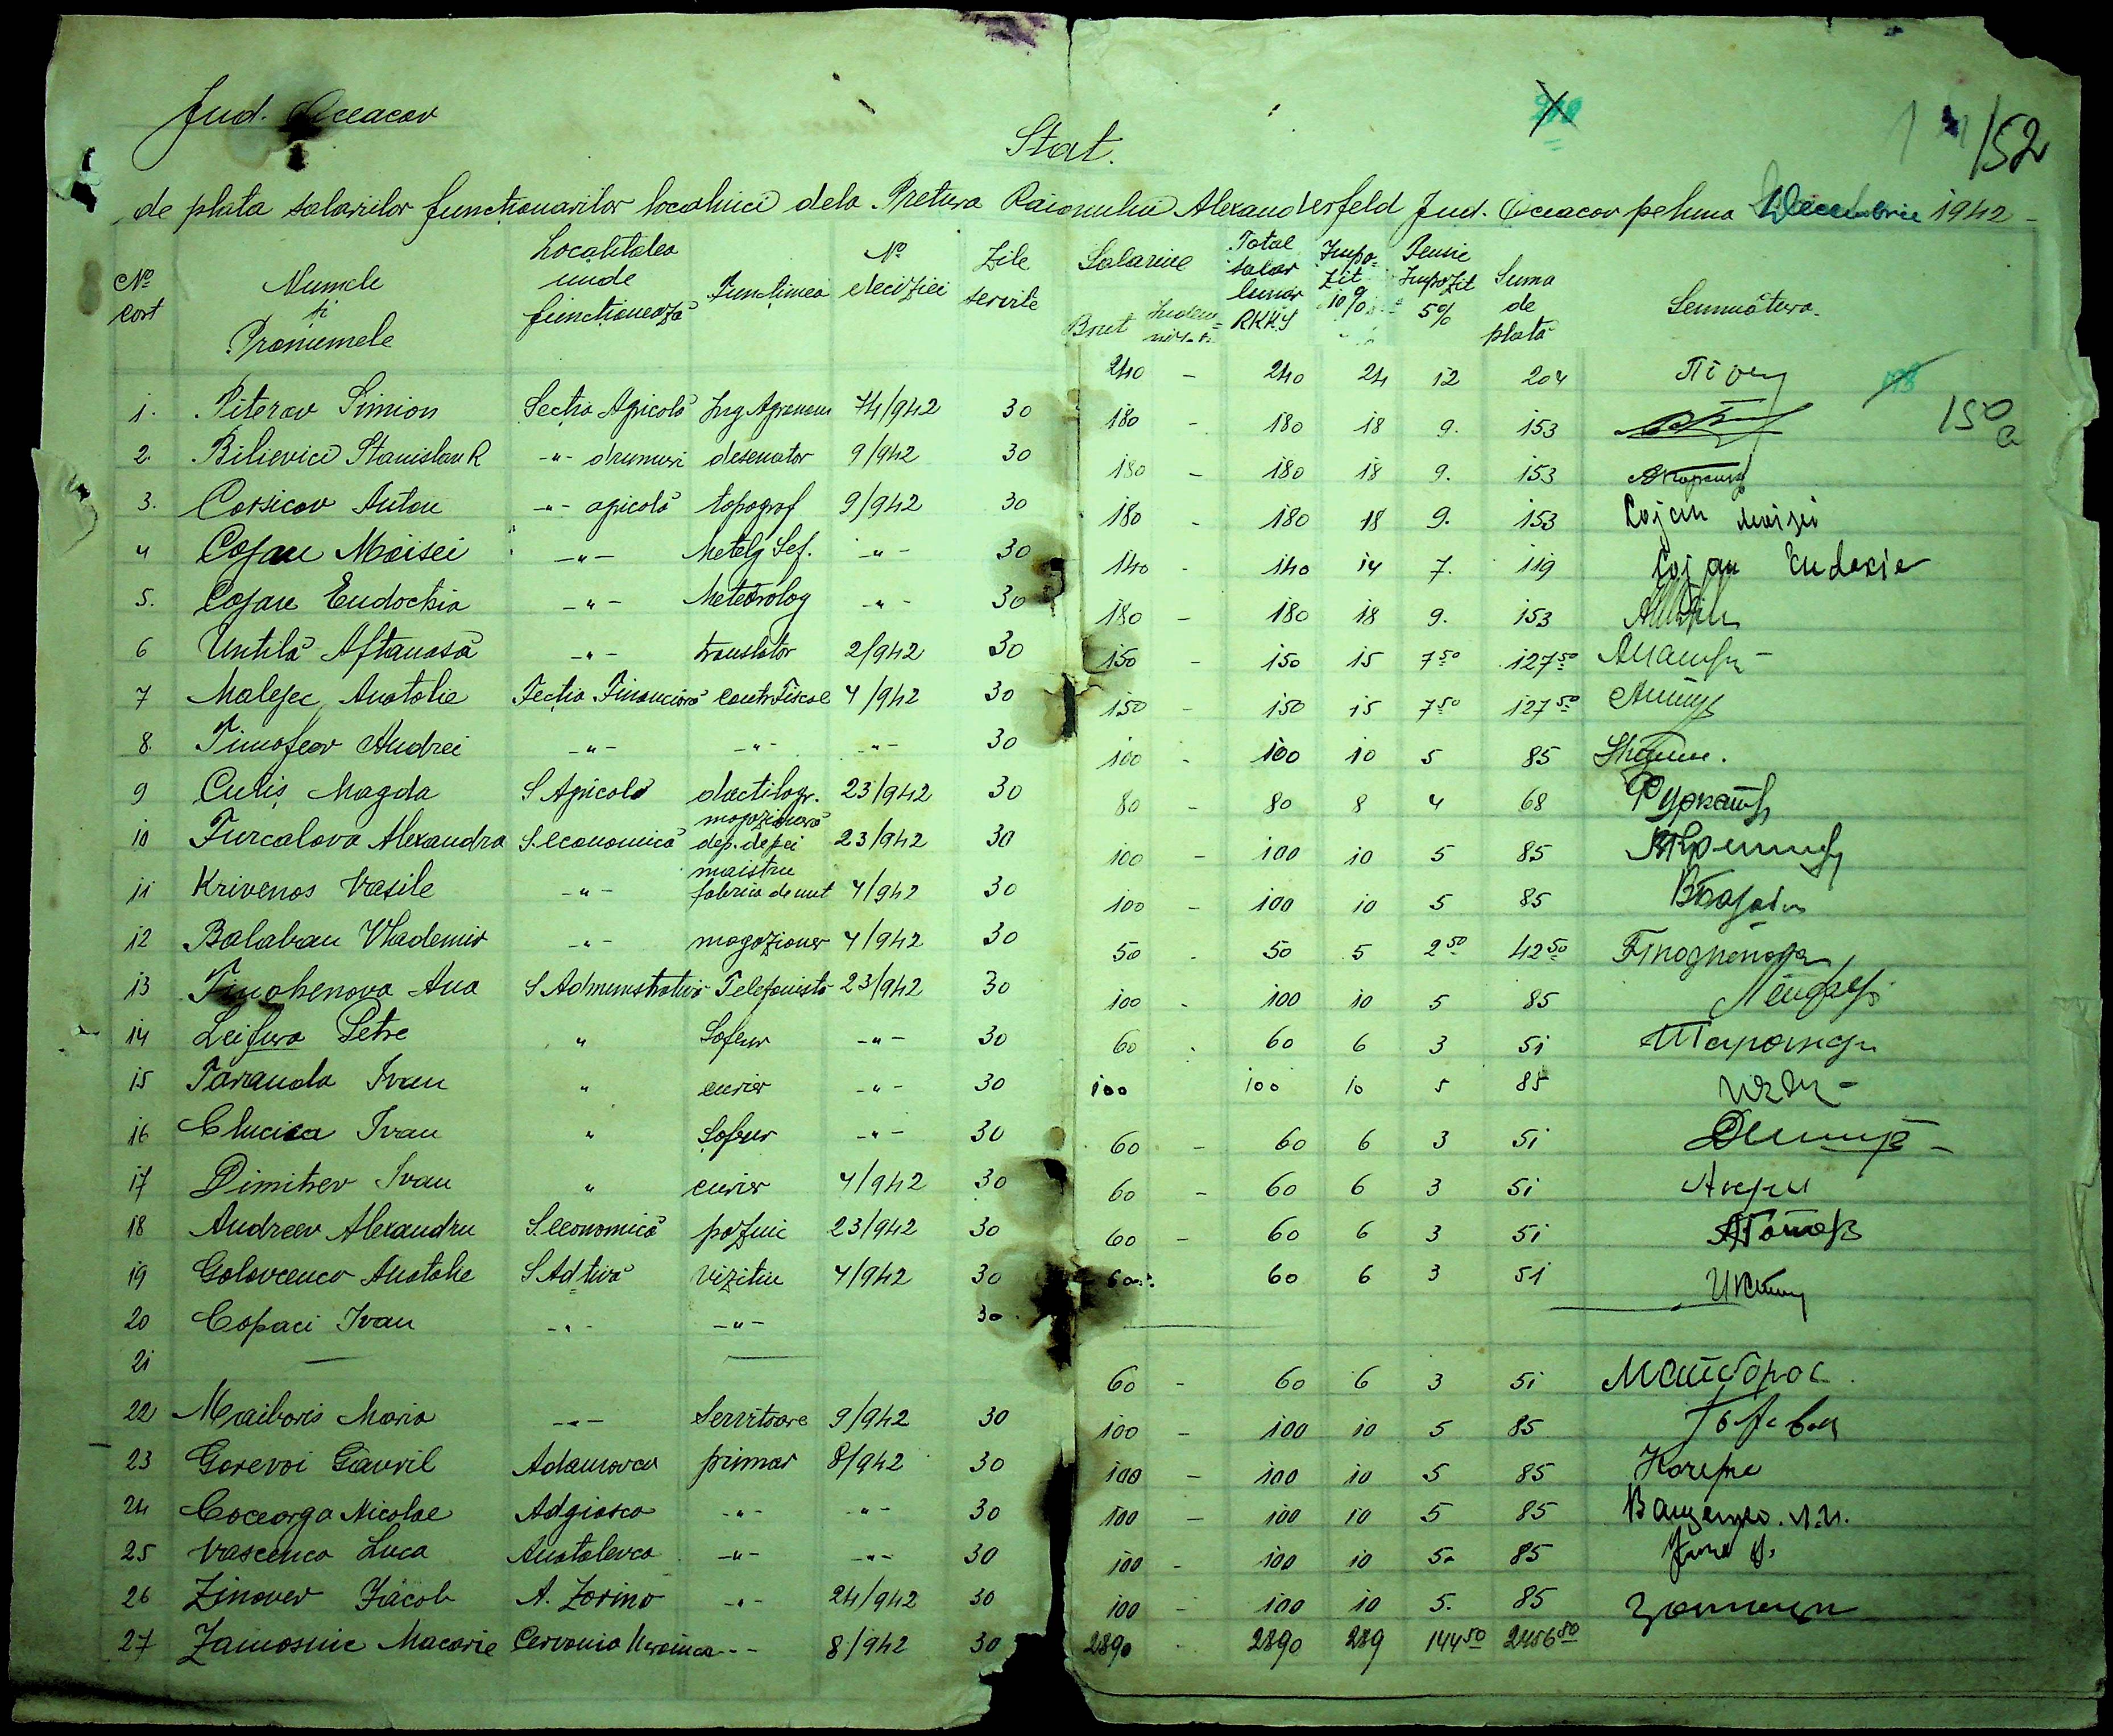 Jud. Oceacov
/52
Stat.
de plata salariilor funcționarilor localnici dela Pretura Raionului Alexanderfeld Jud. Oceacov pe luna Decembrie 1942 -
No cort Numele și Pronumele Localitatea unde funcționează Funcțiunea No deciziei Zile servite Salariul Brut Total salar lunar RKKS Impozit 10% Pensie Impozit 5% Suma de plată Semnătura
1. Piterov Simion Secția Agricolă Ing Agronom 74/942 30 240 - 240 24 12 204
150 a
2. Bilievici Stanislav R -"- drumuri desenator 9/942 30 180 - 180 18 9. 153
3. Corsicov Anton -"- agricolă topograf 9/942 30 180 - 180 18 9. 153
4 Cojan Moisei -"- Metelg Sef. -"- 30 180 - 180 18 9. 153 Cojan Moisei
5. Cojan Eudochia -"- Meteorolog -"- 30 140 - 140 14 7. 119 Cojan Eudoxie
6 Untilă Aftanasă -"- translator 2/942 30 180 - 180 18 9. 153
7 Malejec Anatolie Secția Financiară Contr Fiscal 4/942 30 150 - 150 15 7 50 127 50
8. Timofeov Andrei -"- -"- -"- 30 150 - 150 15 7 50 127 50
9 Culiș Magda S Agricolă dactilogr. 23/942 30 100 - 100 10 5 85
10 Furcalova Alexandra S. economică magazioneră dep. de pei 23/942 30 80 - 80 8 4 68
11 Krivenos Vasile -"- maistru fabrica de unt 4/942 30 100 - 100 10 5 85
12 Balaban Vlademir -"- magazioner 4/942 30 100 - 100 10 5 85
13 Ana S Administrativă Telefonistă 23/942 30 50 - 50 5 2 50 42 50
14 Leifura Petre " Șofeur -"- 30 100 - 100 10 5 85
15 Taranda Ivan " curier -"- 30 60 - 60 6 3 51
16 Clucica Ivan " Șofeur -"- 30 100 100 10 5 85
17 Dimitrev Ivan " curier 4/942 30 60 - 60 6 3 51
18 Andreev Alexandru S. economică paznic 23/942 30 60 - 60 6 3 51
19 Golovcenco Anatolie S Adtivă vizitiu 4/942 30 60 - 60 6 3 51
20 Copaci Ivan -"- -"- 30 60 60 6 3 51
21 —
22 Maiboris Maria -"- Servitoare 9/942 30 60 - 60 6 3 51
23 Gorevoi Gavril Adamovca primar 8/942 30 100 - 100 10 5 85
24 Coceorga Nicolae Adgiasca -"- -"- 30 100 - 100 10 5 85
25 Vascenco Luca Anatolevca -"- -"- 30 100 - 100 10 5 85 Ващенко. Л.И.
26 Zinover Iacob A. Zorino -"- 24/942 30 100 - 100 10 5. 85
27 Zamosnic Macarie Cervonia Ucrainca -"- 8/942 30 100 - 100 10 5. 85
2890 2890 289 144 50 2456 50